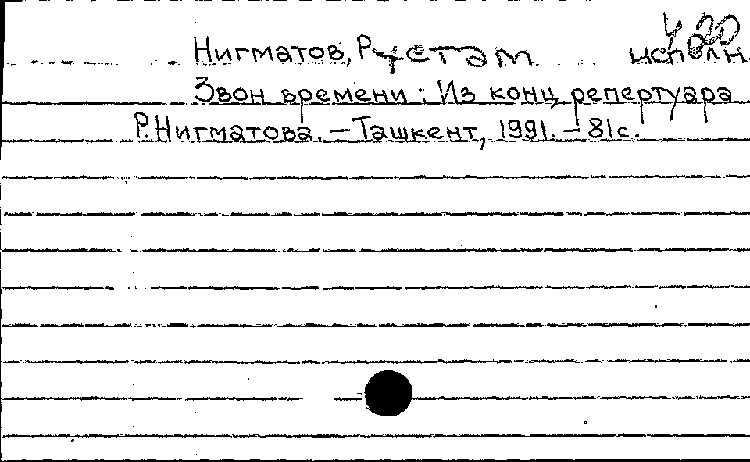 Нигматов, Рустам исполн.
Звон времени: Из конц репертуара
Р. Нигматова. — Ташкент, 1991. — 81с.